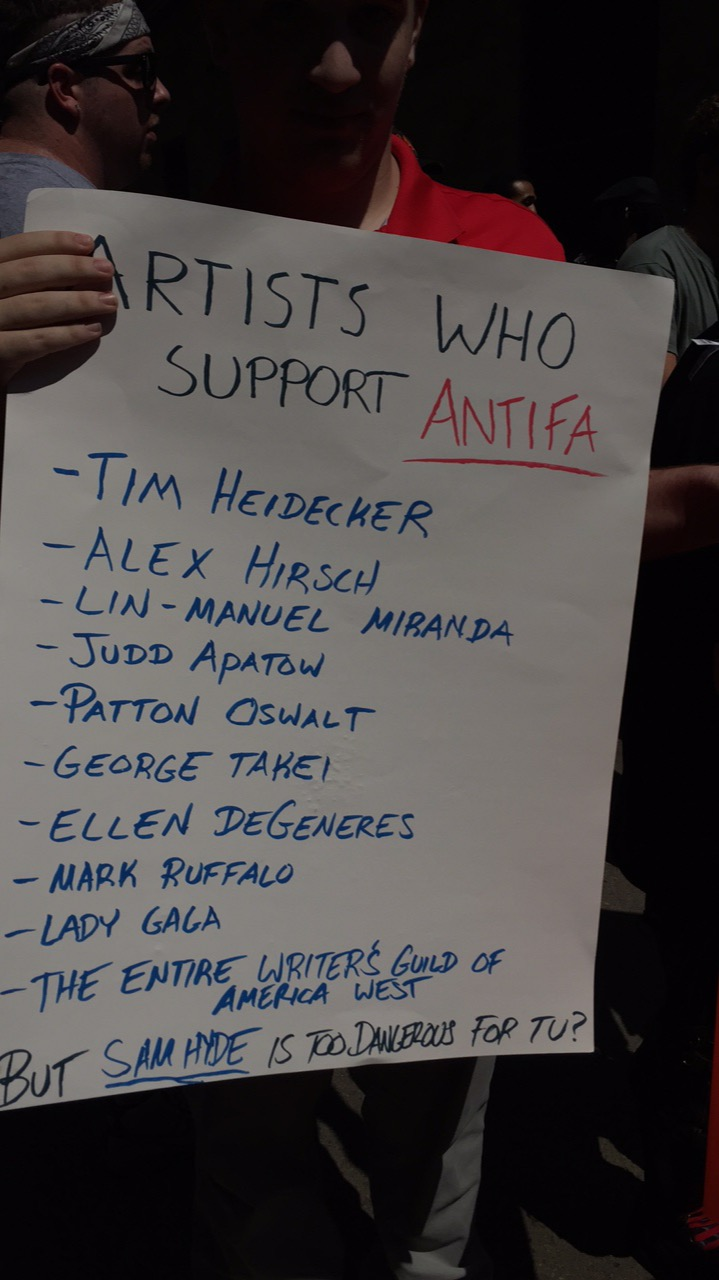 ARTISTS WHO
SUPPORT ANTIFA
- TIM HEIDECKER
- ALEX HIRSCH
- LIN-MANUEL MIRANDA
- JUDD APATOW
- PATTON OSWALT
- GEORGE TAKEI
- ELLEN DEGENERES
- MARK RUFFALO
- LADY GAGA
- THE ENTIRE WRITER'S GUILD OF
AMERICA WEST
BUT SAM HYDE IS TOO DANGEROUS FOR TV?